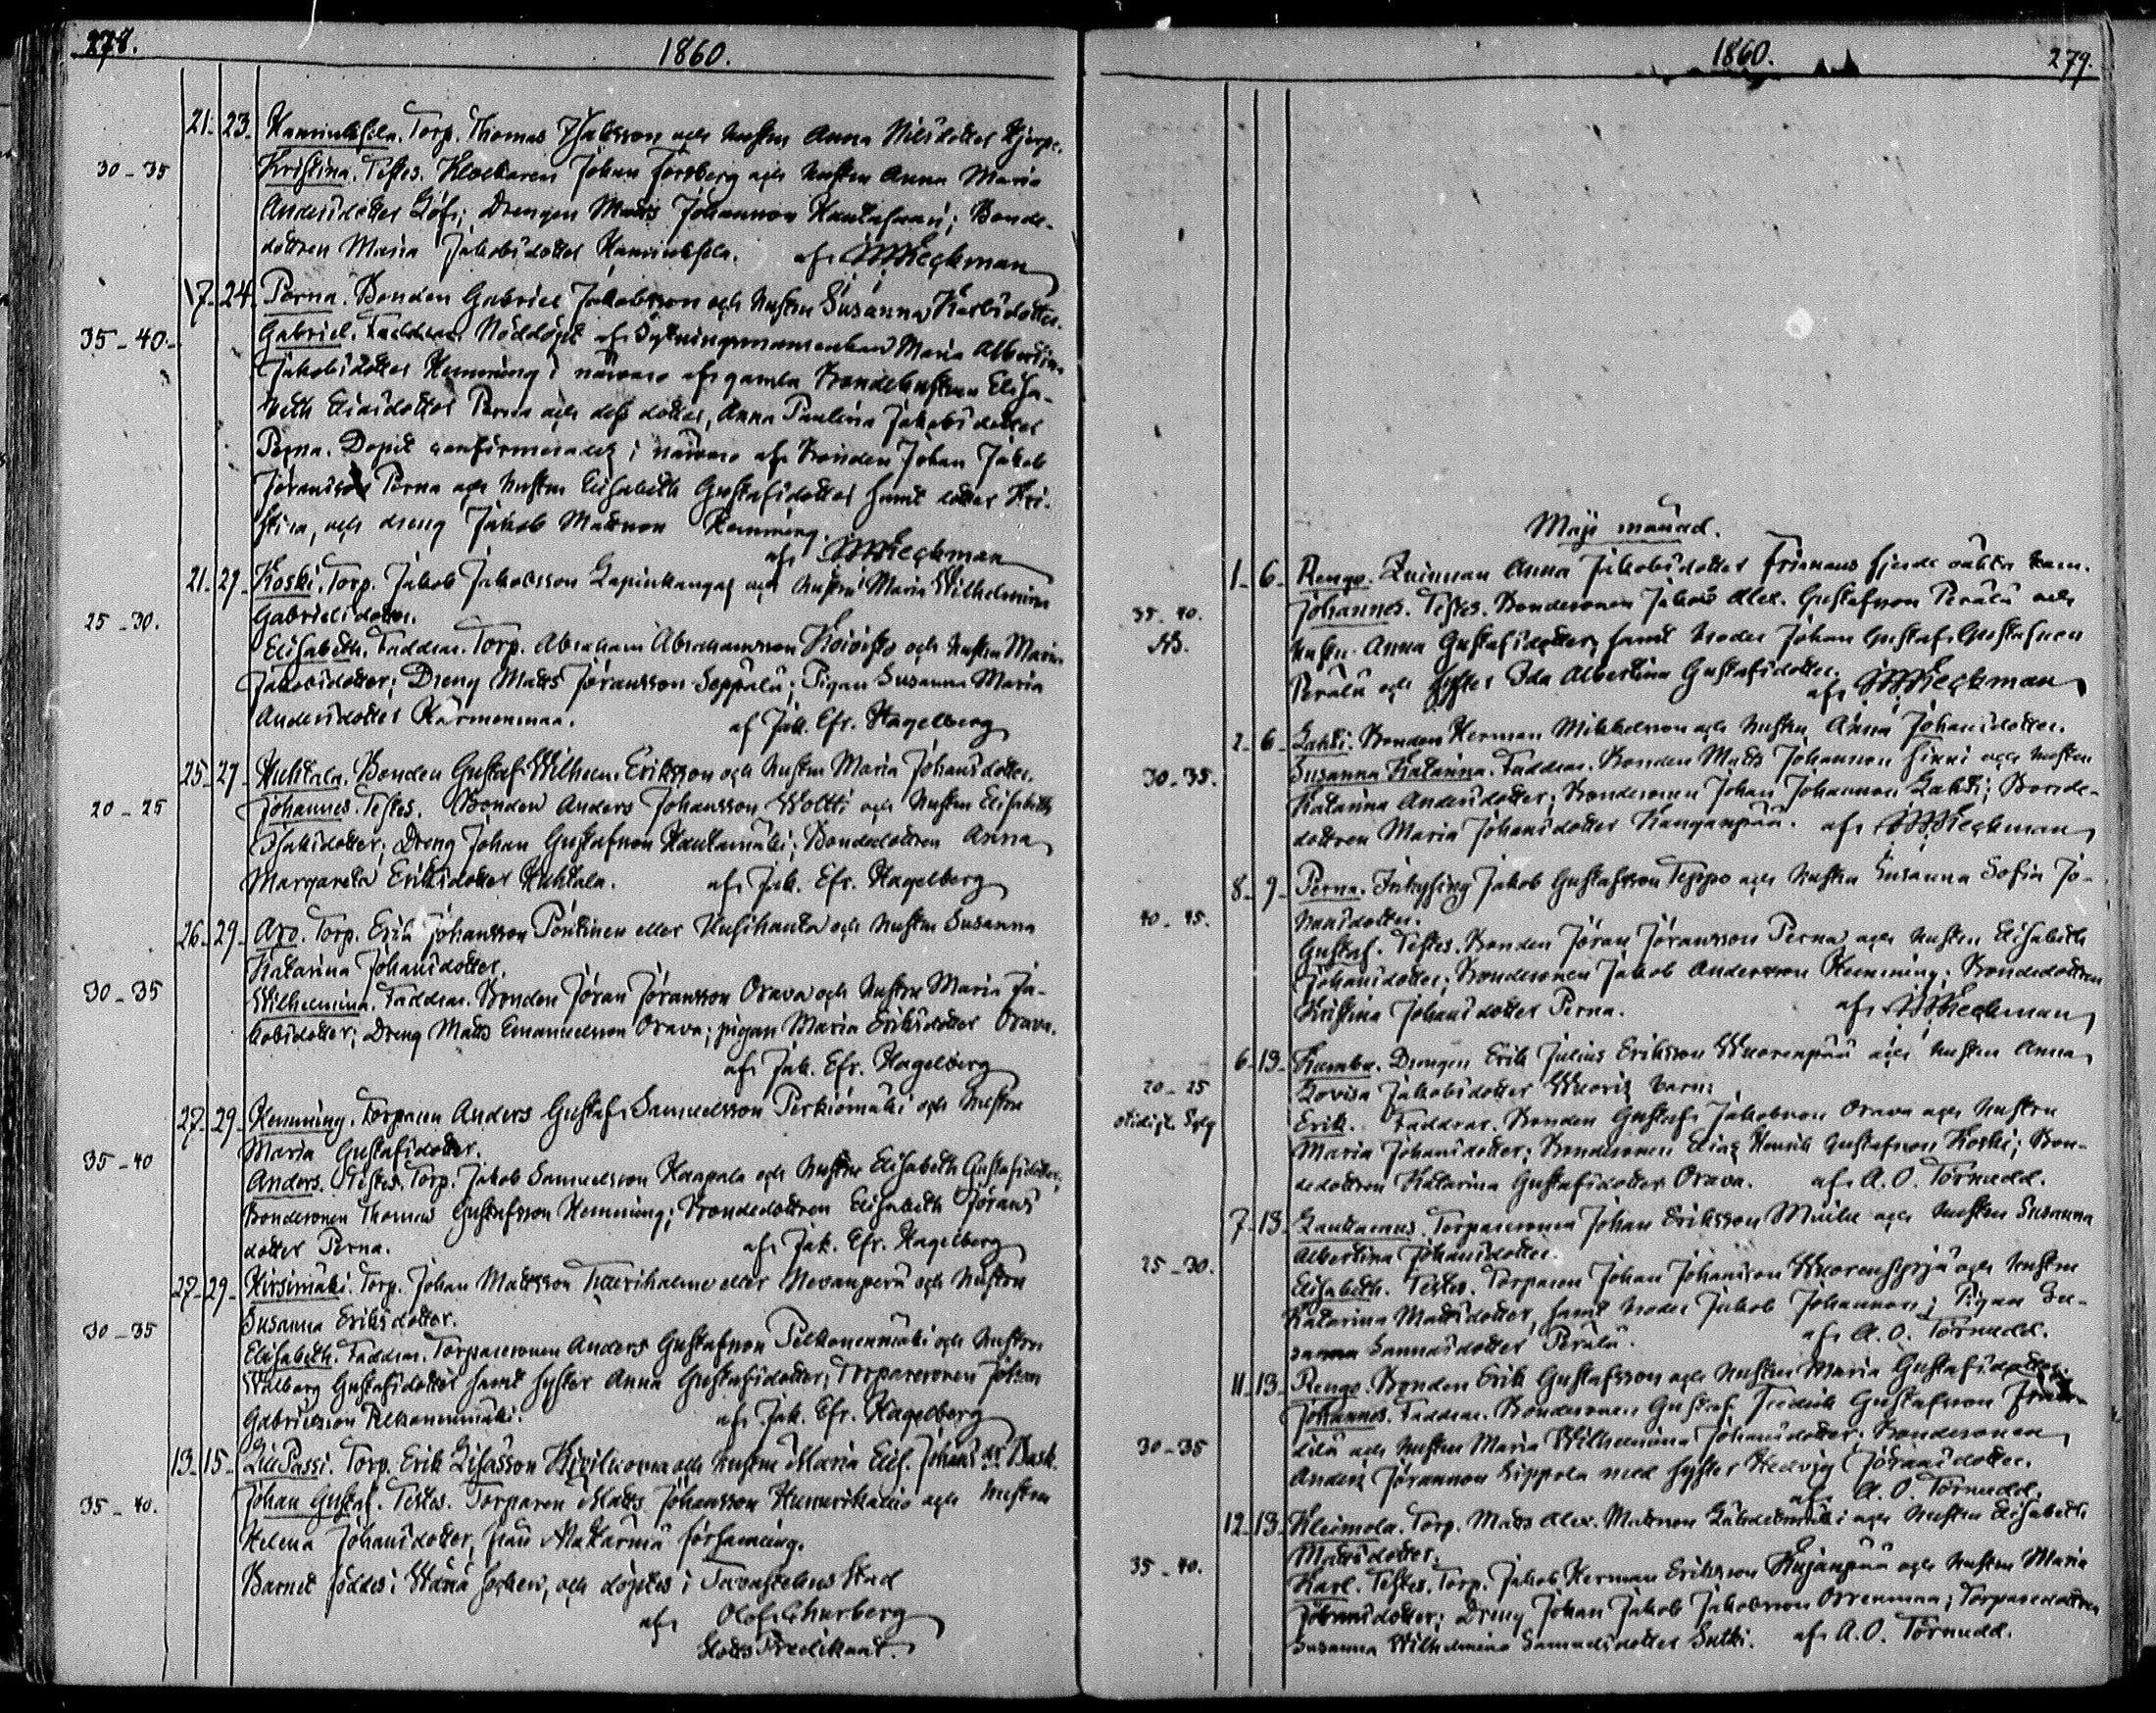 278.
1860.
21. 23. Torp. Thomas och hustrun Anna Nilsdotter
30 - 35
Kristina. Testes. Klockaren Johan Forsberg och hustrun Anna Maria
Andersdotter Löfs; Drengen Matts Johansson; Bonde-
dottren Maria Jakobsdotter. af Heckman
17. 24. Perna. Bonden Gabriel Jakobsson och hustrun Susanna Karlsdotter.
35 - 40.
Gabriel. Faddrar. Nöddöpt af Maria Albertina
Jakobsdotter Hemming i närvaro af gamla Bondehustrun Elisa-
beth Eliasdotter Perna och dess dotter, Anna Paulina Jakobsdotter
Perna. Dopet confirmerades i närvaro af Bonden Johan Jakob
Jöransson Perna och hustrun Elisabeth Gustafsdotter samt dotter Kri-
stina, och dreng Jakob Mattsson Hemming.
af Heckman
21. 29. Koski. Torp. Jakob Jakobsson Lapinkangas och hustrun Maria Wilhelmina
Gabrielsdotter.
25 - 30.
Elisabeth. Faddrar. Torp. Abraham Abrahamsson Koivisto och hustrun Maria
Jakobsdotter; Dreng Matts Jöransson Seppälä; Pigan Susanna Maria
Andersdotter. af Jak. Efr. Hagelberg
25 - 29. Huhtala. Bonden Gustaf Wilhelm Eriksson och hustrun Maria Johansdotter.
20 - 25
Johannes. Testes. Bonden Anders Johansson Woltti och hustrun Elisabeth
Isaksdotter; Dreng Johan Gustafsson Hautamäki; Bondedottren Anna
Margareta Eriksdotter Huhtala. af Jak. Efr. Hagelberg
26 - 29. Aro. Torp. Erik Johansson Pöntinen eller och hustrun Susanna
Katarina Johansdotter.
30 - 35
Wilhelmina. Faddrar. Bonden Jöran Jöransson Orava och hustrun Maria Ja-
kobsdotter; Dreng Matts Emanuelsson Orava; pigan Maria Eriksdotter Orava.
af Jak. Efr. Hagelberg
27 - 29. Hemming. Torparen Anders Gustaf Samuelsson Perkiömäki och hustrun
Maria Gustafsdotter.
35 - 40
Anders. Testes. Torp. Jakob Samuelsson Haapala och hustrun Elisabeth Gustafsdotter;
Bondesonen Thomas Gustafsson Hemming; Bondedottren Elisabeth Jörans
dotter Perna. af Jak. Efr. Hagelberg
27 - 29. Hirsimäki. Torp. Johan Mattsson eller Nevanperä och hustrun
Susanna Eriksdotter.
30 - 35
Elisabeth. Faddrar. Torparesonen Anders Gustafsson Pelkonenmäki och hustrun
Walborg Gustafsdotter samt syster Anna Gustafsdotter; Torparesonen Johan
Gabrielsson Pelkonenmäki. af Jak. Efr. Hagelberg
13 - 15. Lill Passi. Torp. Erik och hustrun Maria Elis. Johansdr Bask.
35 - 40.
Johan Gustaf. Testes. Torparen Matts Johansson och hustrun
Helena Johansdotter, från församling.
Barnet föddes i Wånå socken, och döptes i Tavastehus Stad
af Olof Churberg
Slotts Predikant.
1860.
279.
Maji månad.
1 - 6. Rengo. Qvinnan Anna Jakobsdotter barn.
35 - 40.
Johannes. Testes. Bondesonen Jakob Alex. Gustafsson Perälä och
hustru Anna Gustafsdotter; samt broder Johan Gustaf Gustafsson
Perälä och syster Ida Albertina Gustafsdotter.
af Heckman
2 - 6. Lahti. Bonden Herman Mikkelsson och hustrun Anna Johansdotter.
30 - 35.
Susanna Katarina. Faddrar. Bonden Matts Johansson och hustrun
Katarina Andersdotter; Bondesonen Johan Johansson Lahti; Bonde-
dottren Maria Johansdotter Kanganpää. af Heckman
8 - 9. Perna. Inhysing Jakob Gustafsson Teppo och hustrun Susanna Sofia Jo-
hansdotter.
40 - 45.
Gustaf. Testes. Bonden Jöran Jöransson Perna och hustrun Elisabeth
Johansdotter; Bondesonen Jakob Andersson Hemming; Bondedottren
Kristina Johansdotter Perna. af Heckman
6 - 13. Drengen Erik Julius Eriksson Wuorenpää och hustrun Anna
20 - 25
Lovisa Jakobsdotter barn:
Erik. Faddrar. Bonden Gustaf Jakobsson Orava och hustrun
Maria Johansdotter; Bondesonen Elias Henrik Gustafsson Koski; Bon-
dedottren Katarina Gustafsdotter Orava. af A. O. Törnudd.
7 - 13. Torparesonen Johan Eriksson och hustrun Susanna
Albertina Johansdotter.
25 - 30.
Elisabeth. Testes. Torparen Johan Johansson och hustrun
Katarina Mattsdotter, samt broder Jakob Johansson; Pigan Su-
sanna Perälä. af A. O. Törnudd.
11 - 13. Rengo. Bonden Erik Gustafsson och hustrun Maria Gustafsdotter.
Johannes. Faddrar. Bondesonen Gustaf Fredrik Gustafsson
30 - 35
och hustrun Maria Wilhelmina Johansdotter; Bondesonen
Anders Jöransson med syster Hedvig Jöransdotter.
af A. O. Törnudd.
12 - 13. Kleimola. Torp. Matts Alex. Mattsson och hustrun Elisabeth
Mattsdotter.
35 - 40.
Karl. Testes. Torp. Jakob Herman Eriksson och hustrun Maria
Jöransdotter; Dreng Johan Jakob Jakobsson; Torparedottren
Susanna Wilhelmina Samuelsdotter. af A. O. Törnudd.